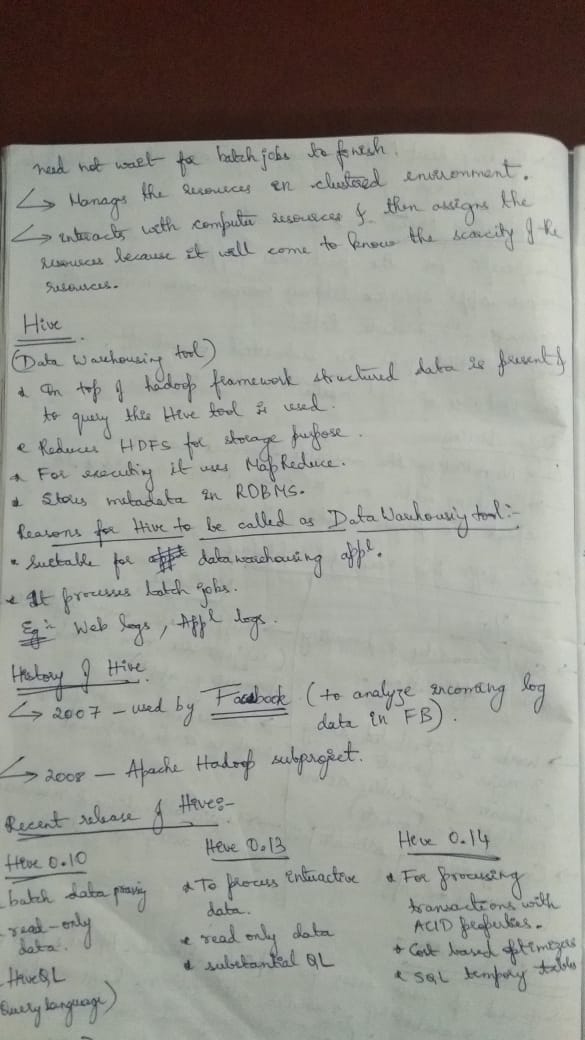 need not wait for batch jobs to finish.
↳ Manages the resources in clustered environment.
↳ interacts with computer resources & then assigns the
resources because it will come to know the scarcity of the
resources.
Hive
(Data Warehousing tool)
* On top of hadoop framework structured data is present &
to query this Hive tool is used.
* Reduces HDFS for storage purpose.
* For executing it uses MapReduce.
* Stores metadata in RDBMS.
Reasons for Hive to be called as Data Warehousing tool:-
* Suitable for datawarehousing appl.
* It processes batch jobs.
Eg:- Web logs, Appl logs.
History of Hive
↳ 2007 - used by Facebook (to analyze incoming log
data in FB).
↳ 2008 - Apache Hadoop subproject.
Recent release of Hive:-
Hive 0.10
- batch data
- read-only
data.
- HiveQL
Query language)
Hive 0.13
* To process interactive
data.
* read only data
* substantial QL
Hive 0.14
* For processing
transactions with
ACID properties.
* Cost based optimizers
* SQL tempory tables